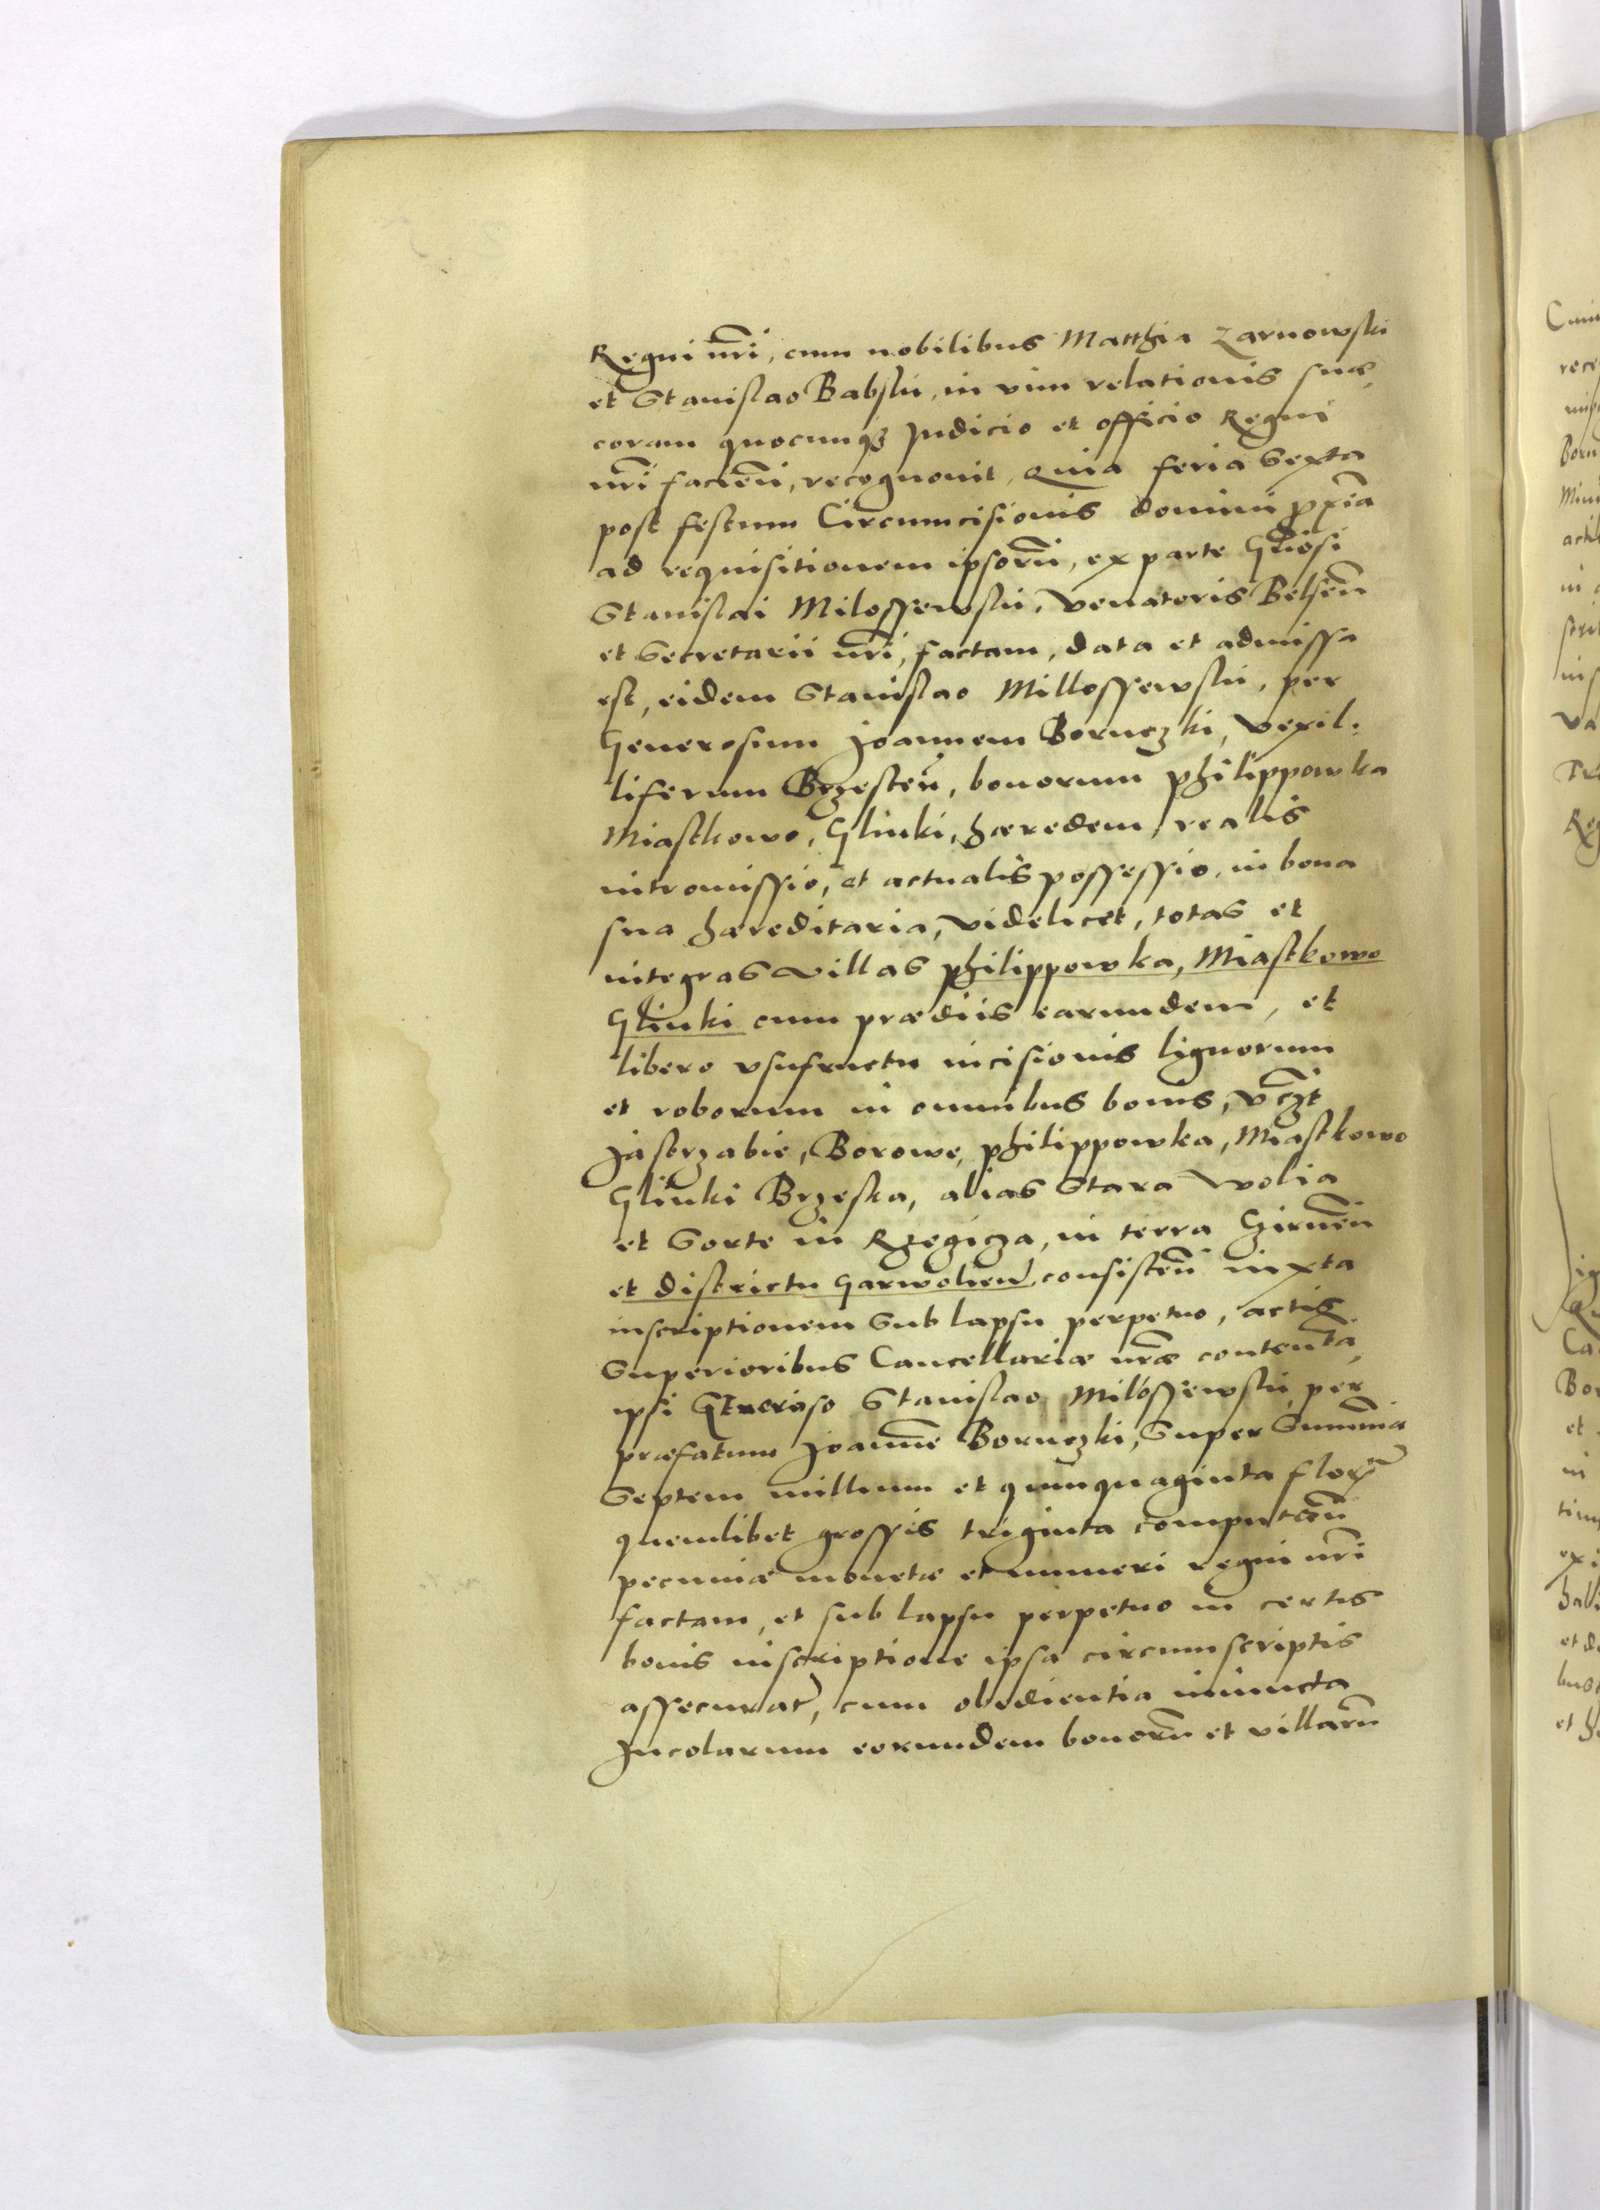 Regni nrĩ, cum nobilibus Matthia Zarnowski
et Stanislao Babskii, in vim relationis suæ,
coram quocunqꝫ Judicio et officio Regni
nrĩ facien̄, recognouit, Quia feria Sexta
post festum Circumcisionis domini proxīa
ad requisitionem ipsorū, ex parte Gn̄osi
Stanislai Milossewskii, Venatoris Belsen̄
et Secretarii nrĩ, factam, data et admissa
est, eidem Stanislao Millossewskii, per
Generosum Joannem Boruczki, Vexil-
liferum Brzesten̄, bonorum Philippowka
Miastkowo, Glinki, hæredem, realis
intromissio, et actualis possessio, in bona
sua hæreditaria, videlicet, totas et
integras villas Philippowka, Miastkowo
Glinki cum prædiis earundem, et
libero vsufructu incisionis lignorum
et roborum in omnibus bonis, vcꝫt
Jastrzabie, Borowe, Philippowka, Miastkowo
Glinki Brzeska, alias Stara Wolia
et Sorte in Rzegicza, in terra Czirnen̄
et districtu Garwolien̄ consisten̄ iuxta
inscriptionem Sub lapsu perpetuo, actis
Superioribus Cancellariæ nrãe contentã,
ipsi Generoso Stanislao Milossewskii per
præfatum Joannē Boruczki, Super Summā
Septem millium et quinquaginta flor̃
quemlibet grossis triginta computan̄
pecuniæ monetæ et numeri regni nrĩ
factam, et sub lapsu perpetuo in certis
bonis inscriptione ipsa circumscriptis
assecurat̃, cum obedientia iniuncta
Incolarum eorundem bonorū et villarū